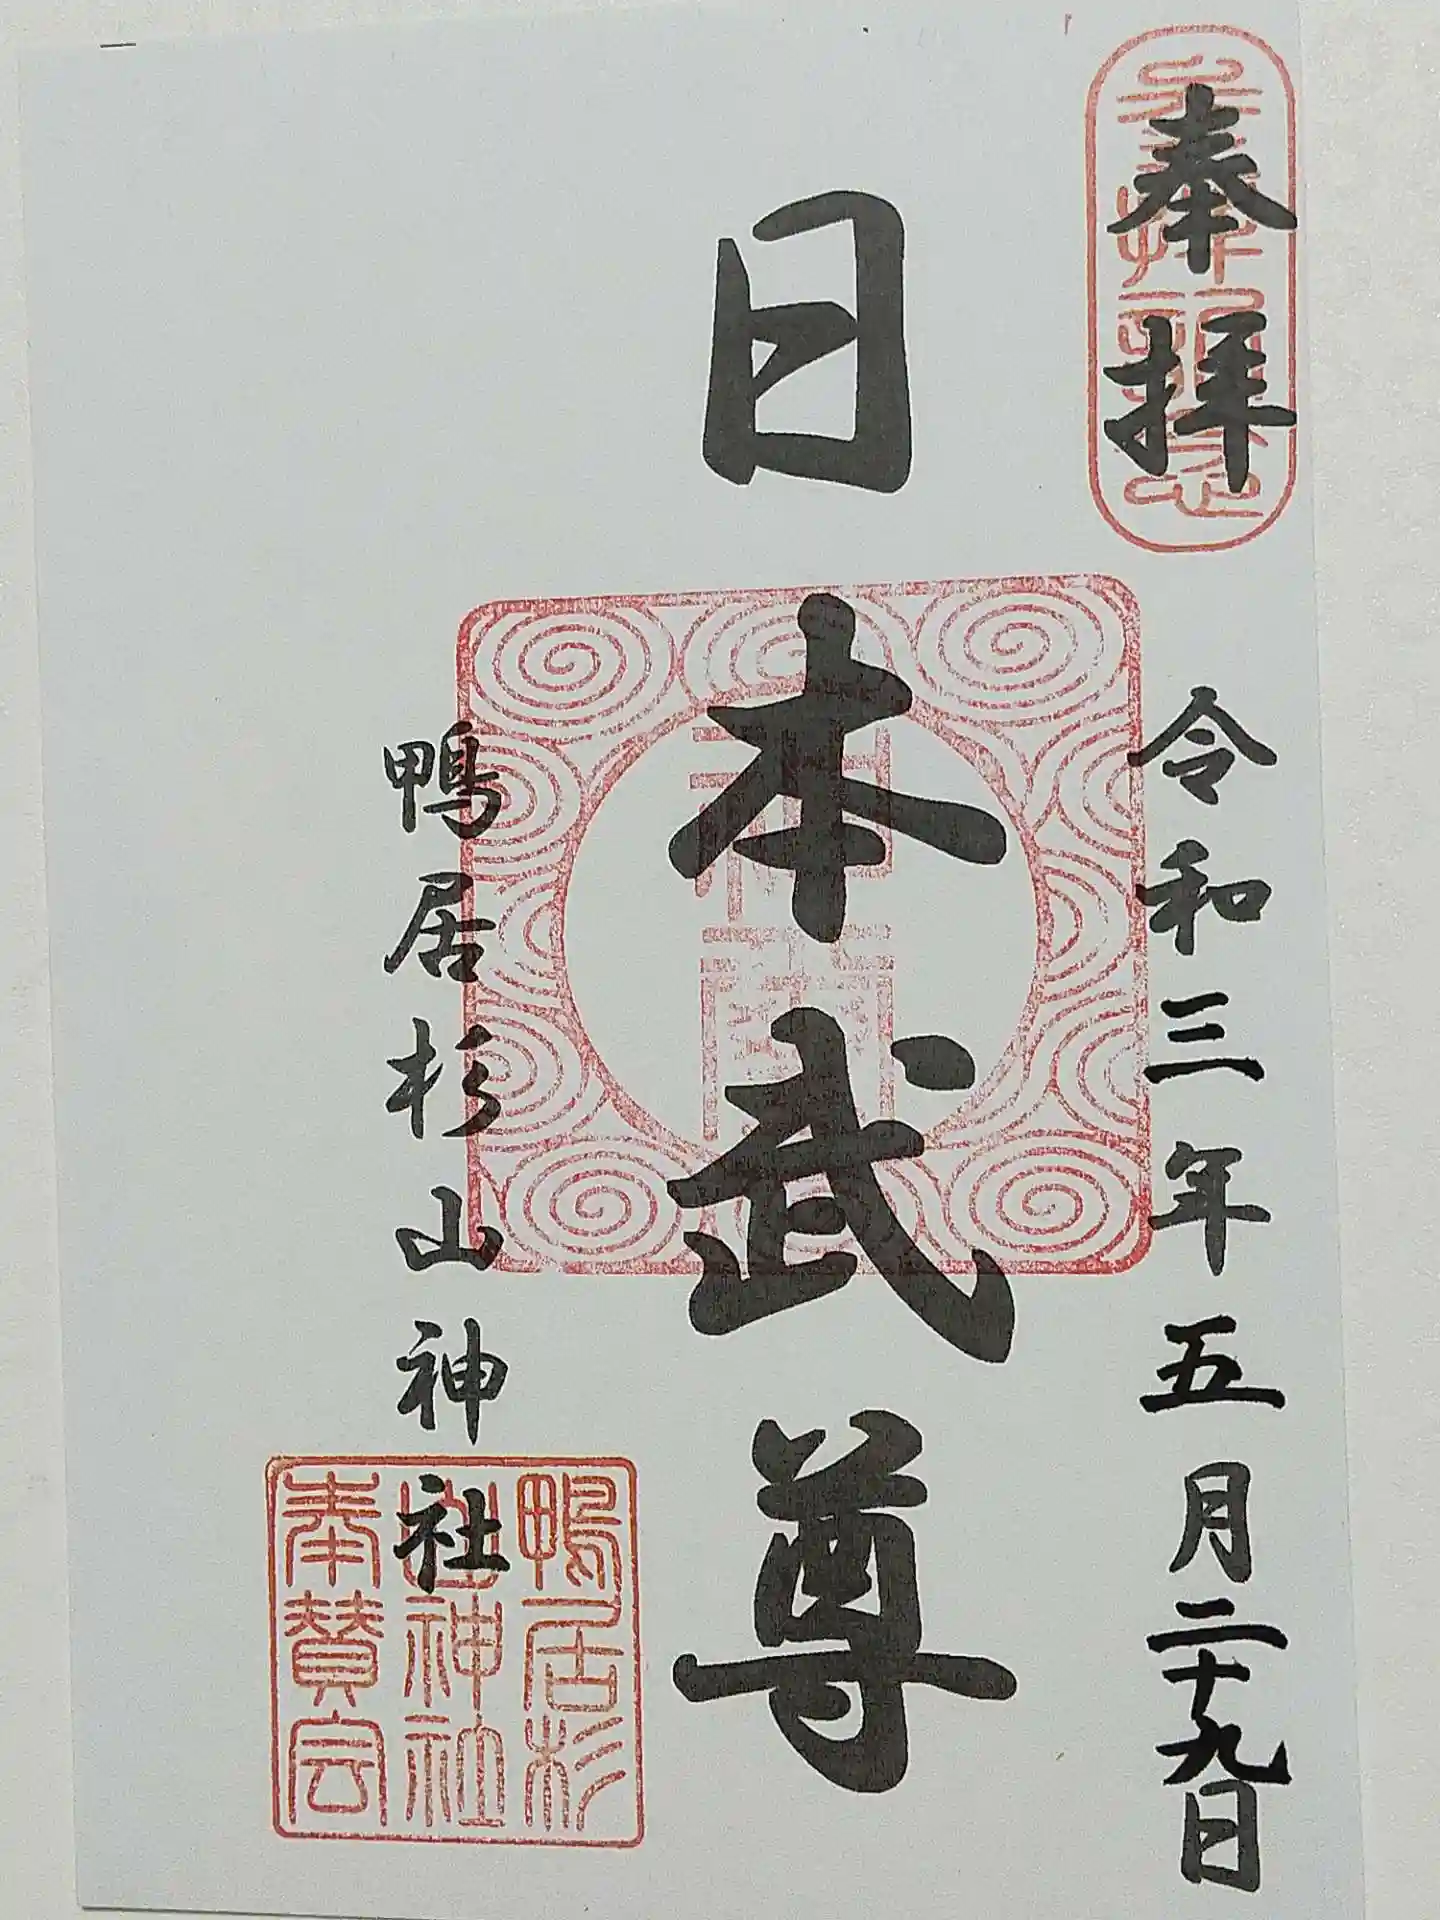 奉拝
令和三年五月二十九日
日本武尊
鴨居杉山神社
鴨居杉
山神社
奉賛会